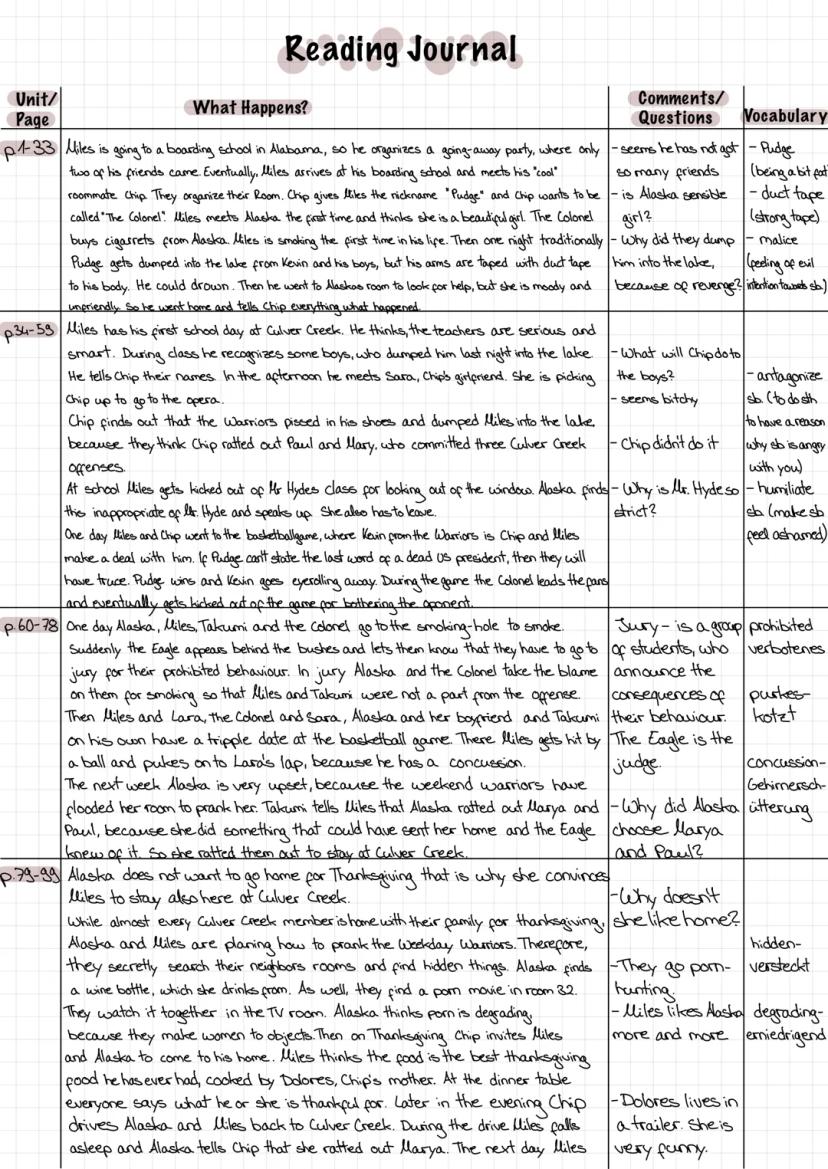 Reading Journal
Unit/
Page
What Happens?
Comments/
Questions
Vocabulary
p.1-33
Miles is going to a boarding school in Alabama, so he organizes a going-away party, where only
two of his friends came. Eventually, Miles arrives at his boarding school and meets his "cool"
roommate Chip. They organize their Room. Chip gives Miles the nickname "Pudge" and Chip wants to be
called "The Colonel". Miles meets Alaska the first time and thinks she is a beautiful girl. The Colonel
buys cigasrets from Alaska. Miles is smoking the first time in his life. Then one night traditionally
Pudge gets dumped into the lake from Kevin and his boys, but his arms are taped with duct tape
to his body. He could drown. Then he went to Alaskas room to look for help, but she is moody and
unfriendly. So he went home and tells Chip everything what happened.
- seems he has not got
so many friends
- is Alaska sensible
girl?
- Why did they dump
him into the lake,
because of revenge?
- Pudge
(being a bit fat
- duct tape
(strong tape)
- malice
(feeling of evil
intention towards sb.)
p.34-59
Miles has his first school day at Culver Creek. He thinks, the teachers are serious and
smart. During class he recognizes some boys, who dumped him last night into the lake.
He tells Chip their names. In the afternoon he meets Sara, Chip's girlfriend. She is picking
Chip up to go to the opera.
Chip finds out that the Warriors pissed in his shoes and dumped Miles into the lake,
because they think Chip ratted out Paul and Mary, who committed three Culver Creek
offenses.
At school Miles gets kicked out of Mr Hydes class for looking out of the window. Alaska finds
this inappropriate of Mr. Hyde and speaks up. She also has to leave.
One day Miles and Chip went to the basketballgame, where Kevin from the Warriors is Chip and Miles
make a deal with him. If Pudge can't state the last word of a dead US president, then they will
have truce. Pudge wins and Kevin goes eyerolling away. During the game the Colonel leads the fans
and eventually gets kicked out of the game for bothering the oponent.
- What will Chip do to
the boys?
- seems bitchy
- Chip didn't do it
- Why is Mr. Hyde so
strict?
- antagonize
sb. (to do sth
to have a reason
why sb is angry
with you)
- humiliate
sb (make sb
feel ashamed)
p.60-78
One day Alaska, Miles, Takumi and the Colonel go to the smoking-hole to smoke.
Suddenly the Eagle appears behind the bushes and lets them know that they have to go to
jury for their prohibited behaviour. In jury Alaska and the Colonel take the blame
on them for smoking so that Miles and Takumi were not a part from the offense.
Then Miles and Lara, the Colonel and Sara, Alaska and her boyfriend and Takumi
on his own have a tripple date at the basketball game. There Miles gets hit by
a ball and pukes on to Lara's lap, because he has a concussion.
The next week Alaska is very upset, because the weekend warriors have
flooded her room to prank her. Takumi tells Miles that Alaska ratted out Marya and
Paul, because she did something that could have sent her home and the Eagle
knew of it. So she ratted them out to stay at Culver Creek.
Jury - is a group
of students, who
announce the
consequences of
their behaviour.
The Eagle is the
judge.
- Why did Alaska
choose Marya
and Paul?
prohibited
verbotenes
pukes-
kotzt
concussion-
Gehirnersch-
ütterung
p.79-99
Alaska does not want to go home for Thanksgiving that is why she convinces
Miles to stay also here at Culver Creek.
While almost every Culver Creek member is home with their family for thanksgiving,
Alaska and Miles are planing how to prank the Weekday Warriors. Therefore,
they secretly search their neighbors rooms and find hidden things. Alaska finds
a wine bottle, which she drinks from. As well, they find a porn movie in room 32.
They watch it together in the TV room. Alaska thinks porn is degrading,
because they make women to objects. Then on Thanksgiving Chip invites Miles
and Alaska to come to his home. Miles thinks the food is the best thanksgiving
food he has ever had, cooked by Dolores, Chip's mother. At the dinner table
everyone says what he or she is thankful for. Later in the evening Chip
drives Alaska and Miles back to Culver Creek. During the drive Miles falls
asleep and Alaska tells Chip that she ratted out Marya. The next day Miles
- Why doesn't
she like home?
- They go porn-
hunting.
- Miles likes Alaska
more and more
- Dolores lives in
a trailer. She is
very funny.
hidden-
versteckt
degrading-
erniedrigend